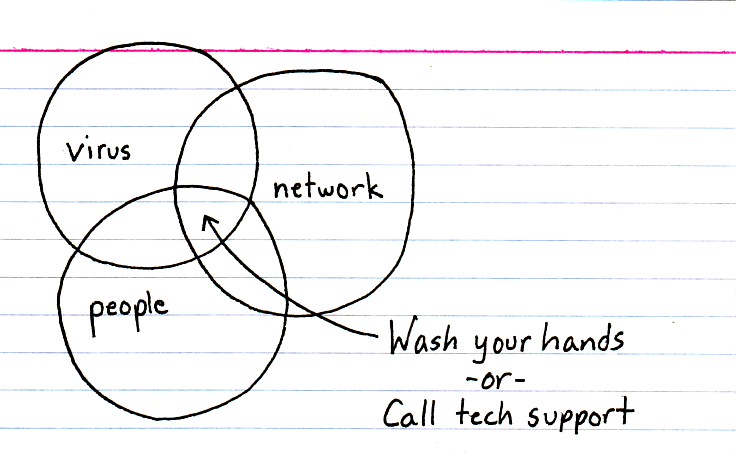 virus
network
people
Wash your hands
-or-
Call tech support